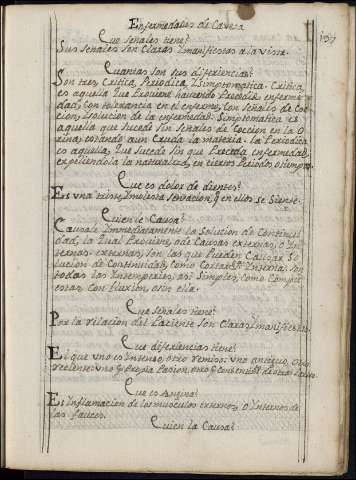 Enfermedades de Caveza
137
Que señales tiene?
Sus señales son Claras y manifiestas a la vista.
Quantas son sus diferiencias?
Son tres, Critica, Periodica, y Simptomatica. Critica,
es aquella que Proviene haviendo Precedido enferme
dad, con tolerancia en el enfermo, con señales de Coc
cion, y solucion de la enfermedad. Simptomatica es
aquella que sucede sin señales de Coccion en la O
rina, estando aun Cruda la materia. la Periodica
es aquella, que sucede sin que Preceda enfermedad,
expeliendola la naturaleza, en ciertos Periodos, o tiempos.
Que es dolor de dientes?
Es una triste, y molesta sensacion, q en ellos se siente.
Quien le Causa?
Causale Immediatamente la solucion de Continui
dad, la qual Proviene, o de Causas externas, o In
ternas. externas, son las que Pueden Causar So
lucion de Continuidad, como Cortar &c. Internas, son
todas las Intemperies, asi simples, como Compu
estas, con fluxion, o sin ella.
Que señales tiene?
Por la relacion del Paciente son Claras, y manifiestas.
Que diferiencias tiene?
El que uno es Intenso, otro remiso: uno antiguo, otro
reciente: uno q es Propia Pasion, otro q es
Que es Angina?
Es Inflamacion de los musculos externos, o Internos de
las fauces.
Quien la Causa?